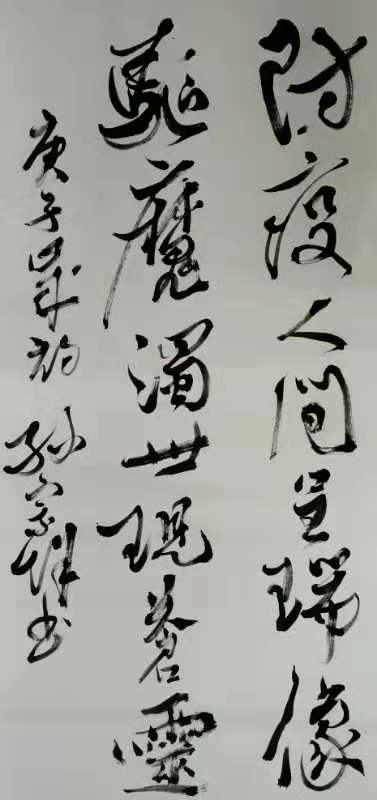 防疫人間呈瑞像
驅魔濁世現蒼靈
庚子歲初 孫家輝書